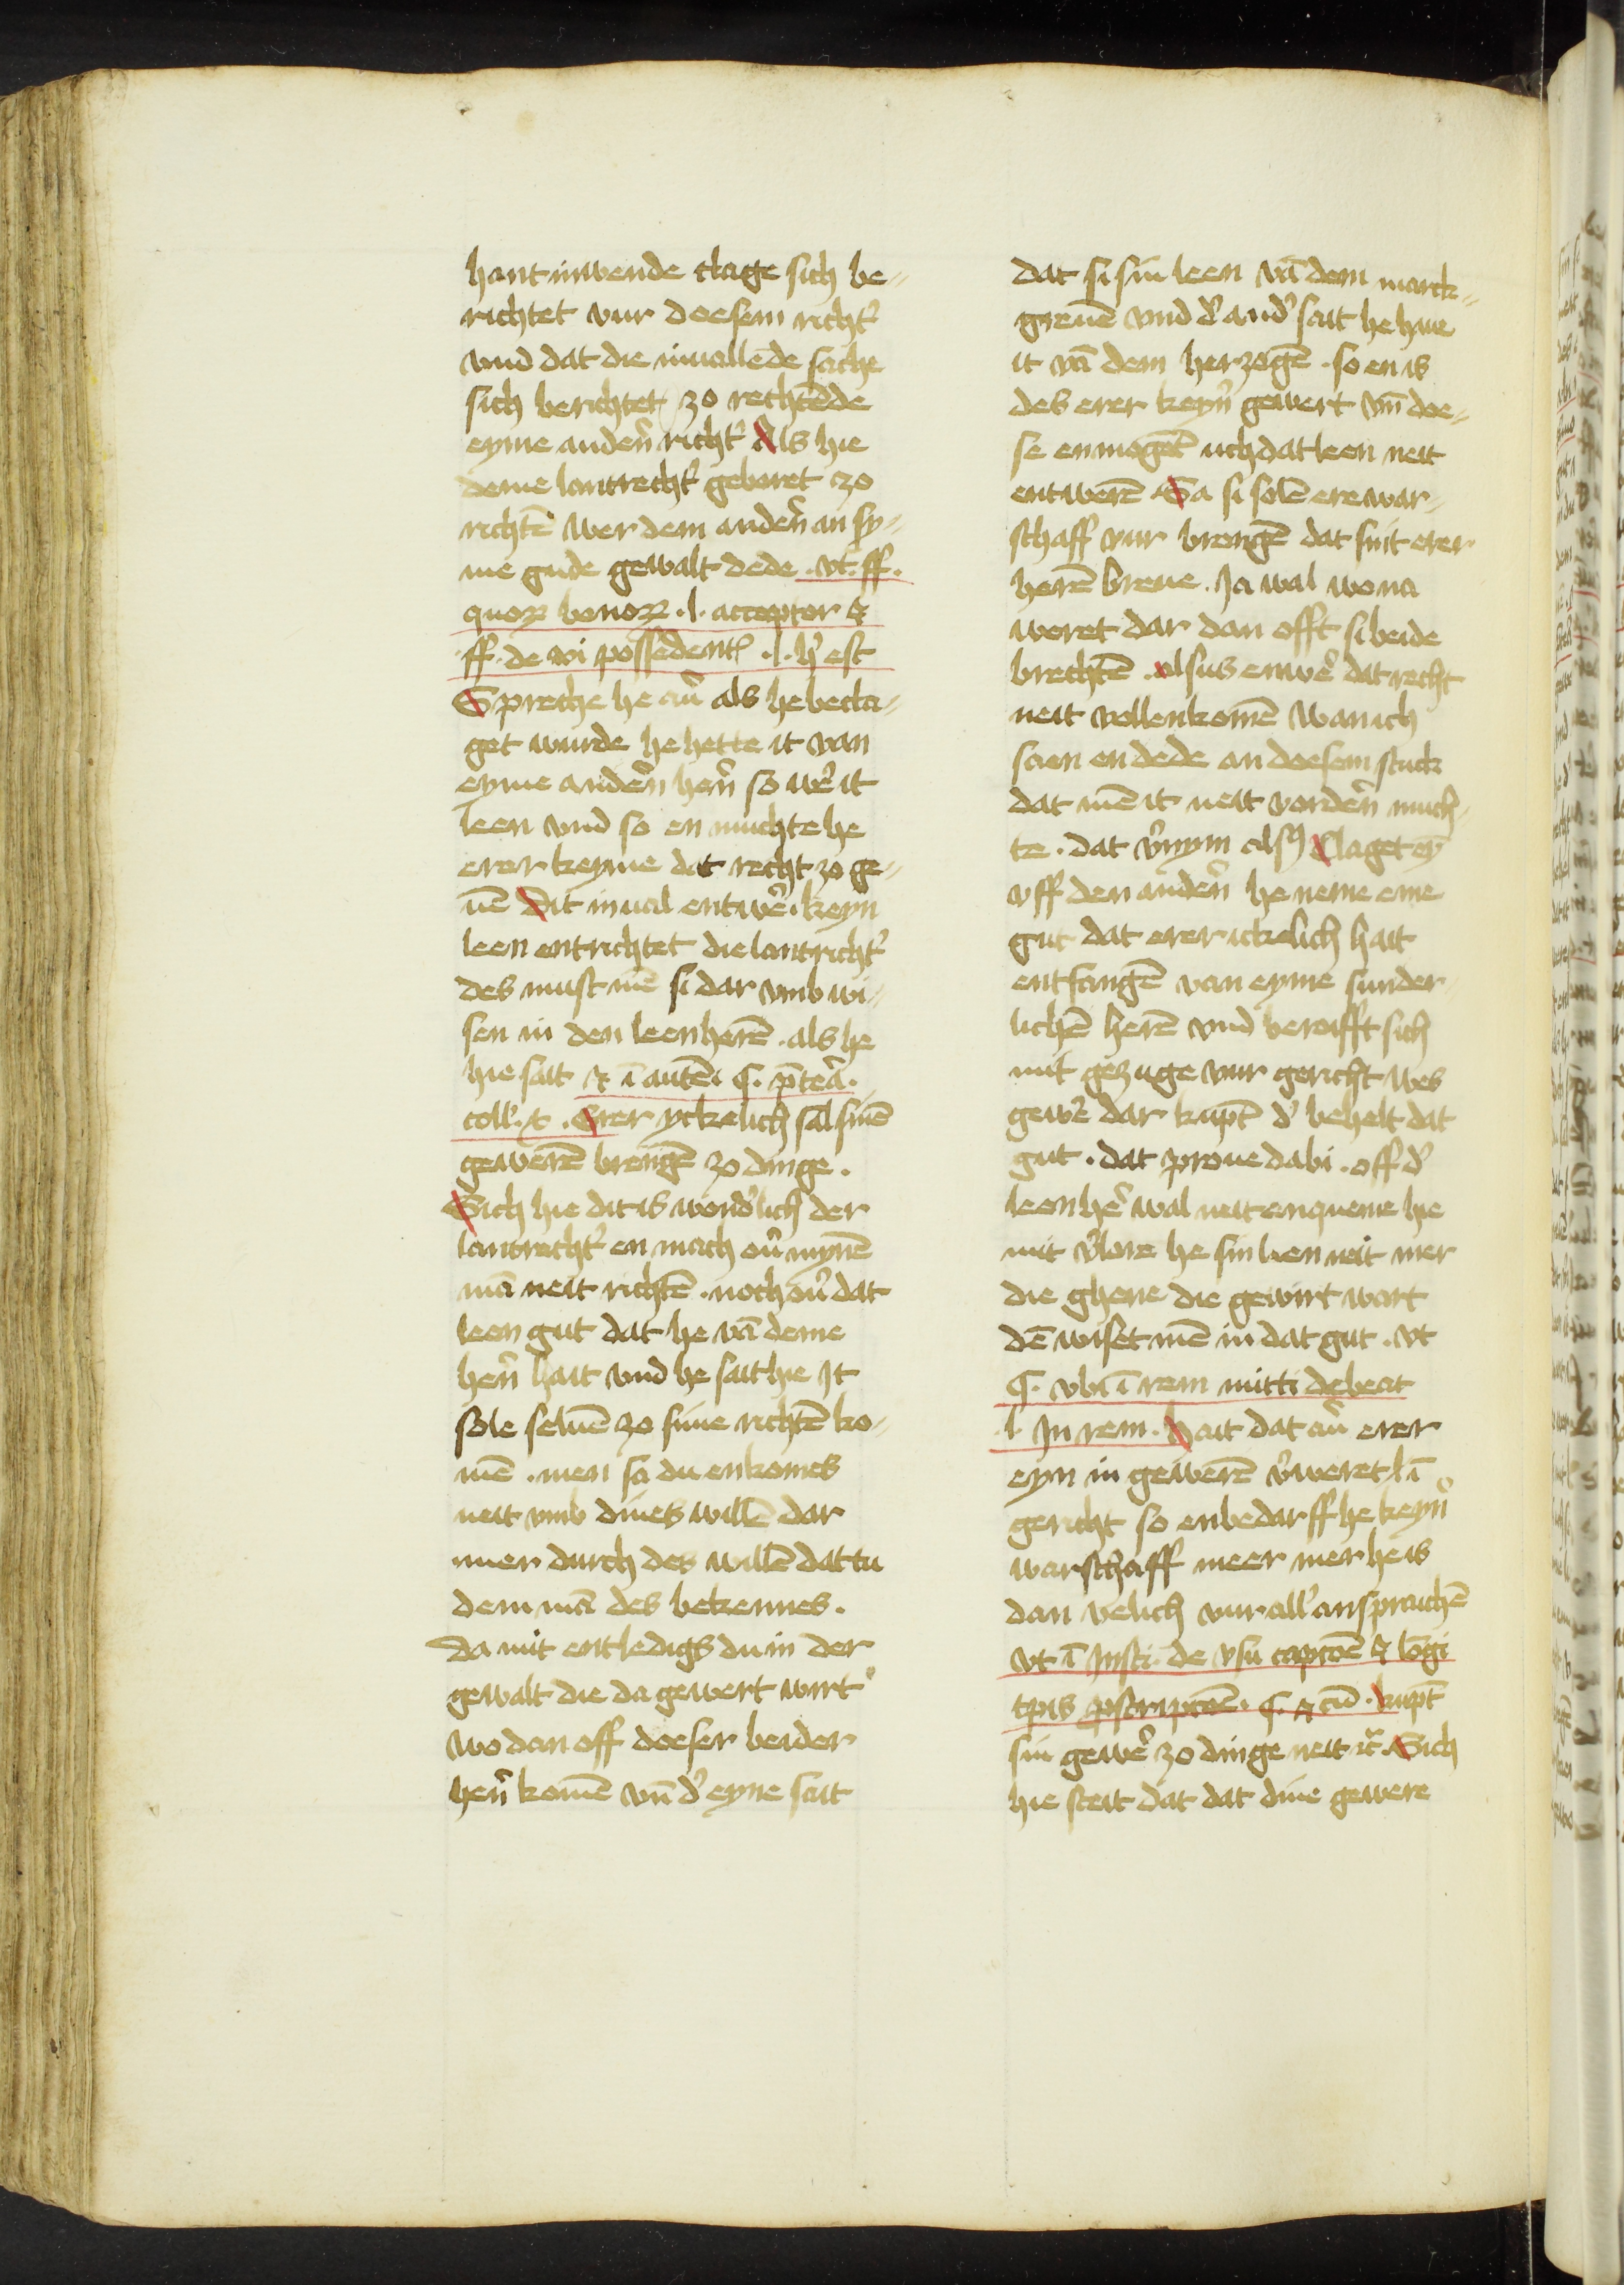 hant inwende clage sich be-
richtet vur doesem richt'
vnd dat die invallēde sache
sich berichtet zo rechtēde
eyme anderñ richt' Als hie
deme lantrecht' geboret zo
richtē wer dem anderñ an sy-
me gude gewalt dede . vt . ff .
quoꝝ bonoꝝ . l . acceptor &
ff . de vi possedentꝭ . l . h' est
Spreche he au' als he becla-
get wurde he hette it van
eyme anderñ herñ so we'it
leen vnd so en muchte he
erer keyme dat recht zo ge-
uē Dit inual entwe'. keyn
leen entrichtet die lantricht'
des must mē si dar vmb wi-
sen in den leenherē . als he
hie sait & ī autē . C . p̄teā .
coll' . x . Erer yckelich sal sinē
gewerē brengē zo dinge .
Sich hie dit is wond'lich der
lantrecht' en mach ou' mynē
mā neit richtē . noch ou' dat
leen gut dat he vā deme
herñ hait vnd he sait hie It
sole seluē zo sime richtē ko-
mē . men sa du enkomes
neit vmb dines willē dar
mer durch des willē dattu
dem mā des bekennes .
da mit entledigs du in der
gewalt die da gewert wirt
wo dan off doeser beider
herñ komē vñ d' eyne sait
dat si sin leen vā dem marck-
greuē vnd d' and' sait he haue
it vā dem herzogē . so en is
des erer keyn' gewert vm doe-
se enmogēt uch dat leen neit
entwerē Sa si solē ere war-
schaff vur brengē dat sint erer
herē breue . Ja wal wo na
weret dar dan offt si beide
brechtē . alsus enwe' dat recht
neit vollenkomē wan ich
saen en dede an doesem stuck
dat mē it neit vorderñ much-
te . dat v'nym alsꝰ Claget eȳ
vff den anderñ he neme eme
gut dat erer ickelich hait
entfangē van eyme sunder-
lichē herē vnd beroifft sich
mit gezuge vur gericht wes
gewe' dar kūpt d' behelt dat
gut . dat proue dabi . off d'
leenhe' wal neit enqueme hie
mit v'lore he sin leen neit mer
die ghene die gewirt wart
dē wiset mē in dat gut . vt
C . vbi ī rem mitti debeat
l . In rem . Hait dat au' erer
eyn in gewerē v'weret h ī
gericht so enbedarff he keyn'
warschaff meer mer he is
dan velich vur all' ansprachē
vt ī Insti . de vsu capcōē & lōgi
tp̄is p̄scripcōē . C . & cū . kūpt
sin gewe' zo dinge neit &c̄ . Sich
hie steit dat dat dine gewere